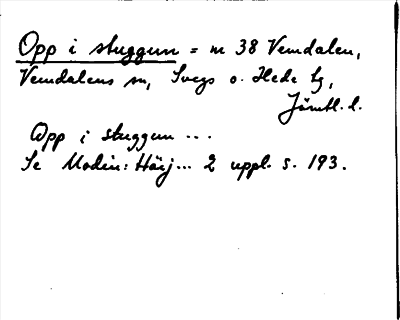 Opp i stuggun = n 38 Vemdalen,
Vemdalens sn, Svegs o. Hede tg,
Jämtl. l.
Opp i stuggun ...
Se Modin: Härj... 2 uppl. s. 193.